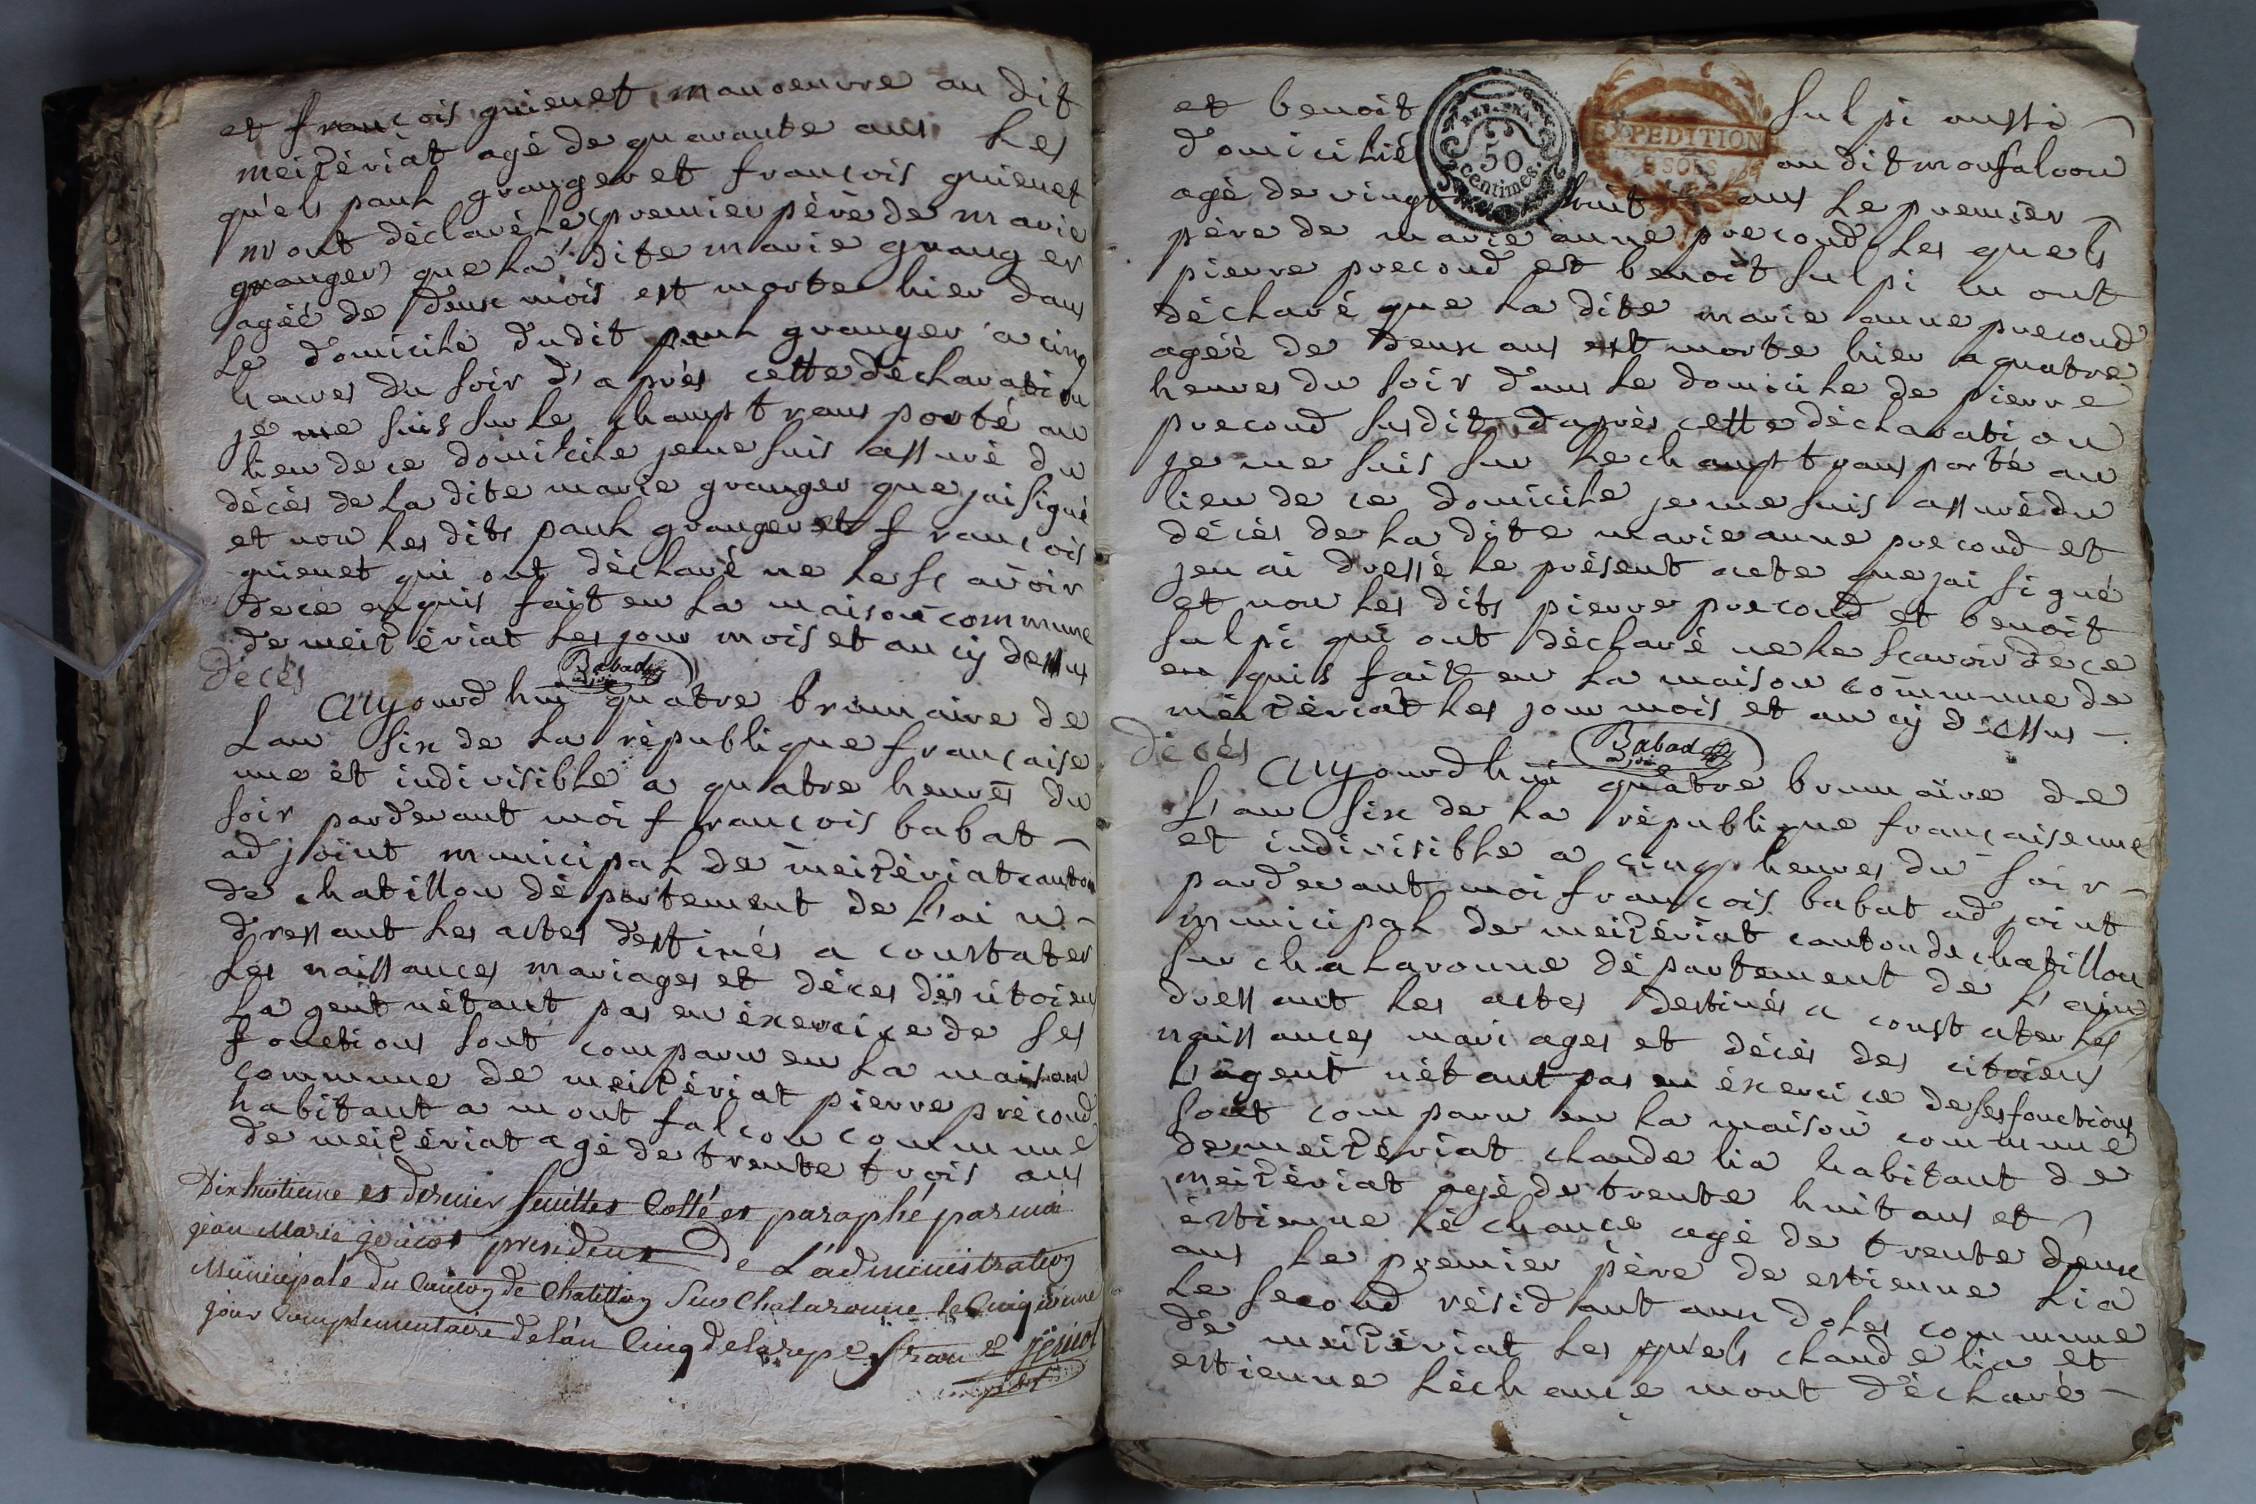 et françois guienet manoeuvre au dit
meizériat agé de quarante ans les
qu'els paul granger et françois guienet
m'ont déclaré le premier père de marie
granger que la dite marie granger
agéé de deux mois est morte hier dans
le domicile dudit paul granger a cinq
heures du soir d'après cette déclaration
je me suis sur le champt transporté au
lieu de ce domicile je me suis assuré du
décès de la dite marie granger que jai signé
et non les dits paul granger et françois
guienet qui ont déclaré ne le sçavoir
de ce enquis fait en la maison commune
de meizériat les jour mois et an cy dessus
Babad
adjoint
décès
Aujourd'hui quatre brumaire de
Lan six de la république française
une et indivisible a quatre heures du
soir pardevant moi françois babat
adjoint municipal de meizériat canton
de chatillon département de l'ain
dressant les actes destinés a constater
les naissances mariages et décès des citoiens
lagent nétant pas en éxercice de ses
fonctions sont comparu en la maison
commune de meizériat pierre précond
habitant a montfalcon commune
de meizériat agé de trente trois ans
Dixhuitieme et dernier feuillet Cotté et paraphé par moi
jean Marie jenicot president de L'administration
Municipale du Canton de Chatillon Sur Chalaronne le Cinquieme
jour Complementaire de l'an Cinq de la rep.e fran.se jenicot
et benoit sulpi aussi
domicilié au dit monfalcon
agé de vingt huit ans le premier
père de marie anne precond les quels
pierre precond et benoit sulpi m ont
déclaré que la dite marie anne precond
agéé de deux ans est morte hier a quatre
heures du soir dans le domicile de pierre
precond susdit d'après cette déclaration
je me suis sur le champt transporté au
lieu de ce domicile je me suis assuré du
décès de la dite marie anne precond et
jen ai dressé le présent acte que jai signé
et non les dits pierre precond et benoit
sulpi qui ont déclaré ne le scavoir de ce
enquis fait en la maison commune de
meizériat les jour mois et an cy dessus
REP. FRA.
50
centimes.
EXPEDITION
SOLS
Babad
adjoint
décès
Aujourdhui quatre brumaire de
L'an six de la république française une
et indivisible a cinq heures du soir
pardevant moi françois babat adjoint
municipal de meizériat canton de chatillon
sur chalaronne département de l'ain
dressant les actes destinés a constater les
naissances mariages et décès des citoiens
L'agent nétant pas en éxercice de ses fonctions
sont comparu en la maison commune
de meizériat claude lia habitant de
meizériat agé de trente huit ans et
estienne léchance agé de trente deux
ans le premier père de estienne lia
le second résidant aux doles commune
de meizériat les quels claude lia et
estienne léchance mont déclaré